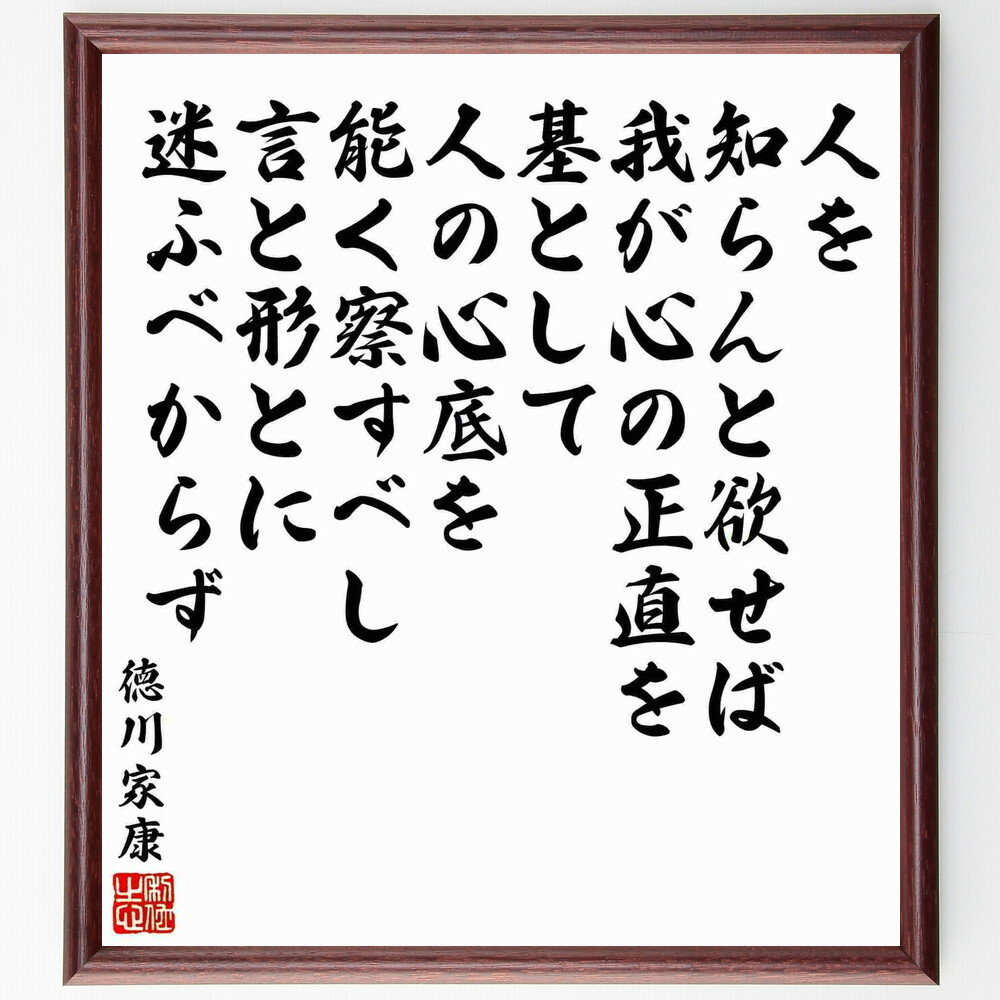 人を
知らんと欲せば
我が心の正直を
基として
人の心底を
能く察すべし
言と形とに
迷ふべからず
徳川家康